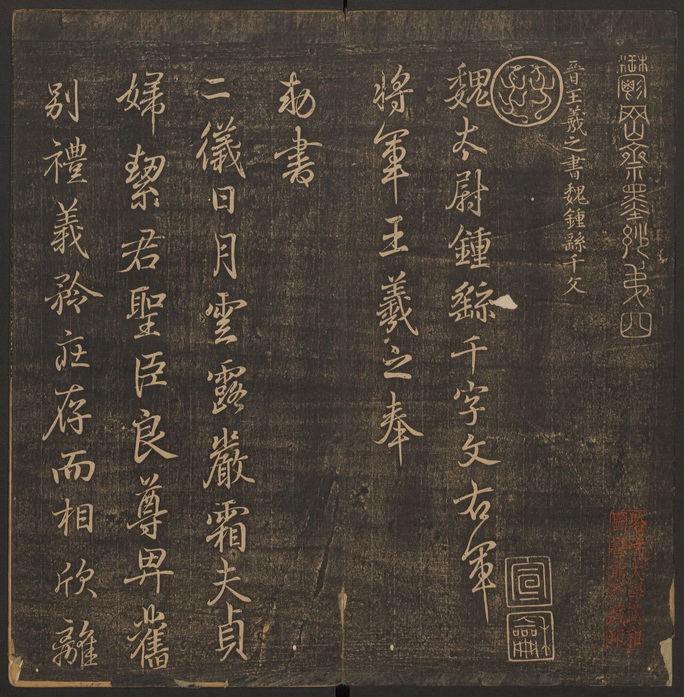 鬱岡齋墨妙第四
晉王羲之書魏鍾繇千文
魏太尉鍾繇千字文右軍
宣龢
將軍王羲之奉
勑書
二儀日月雲露嚴霜夫貞
婦絜君聖臣良尊卑舊
別禮義矜庄存而相欣離